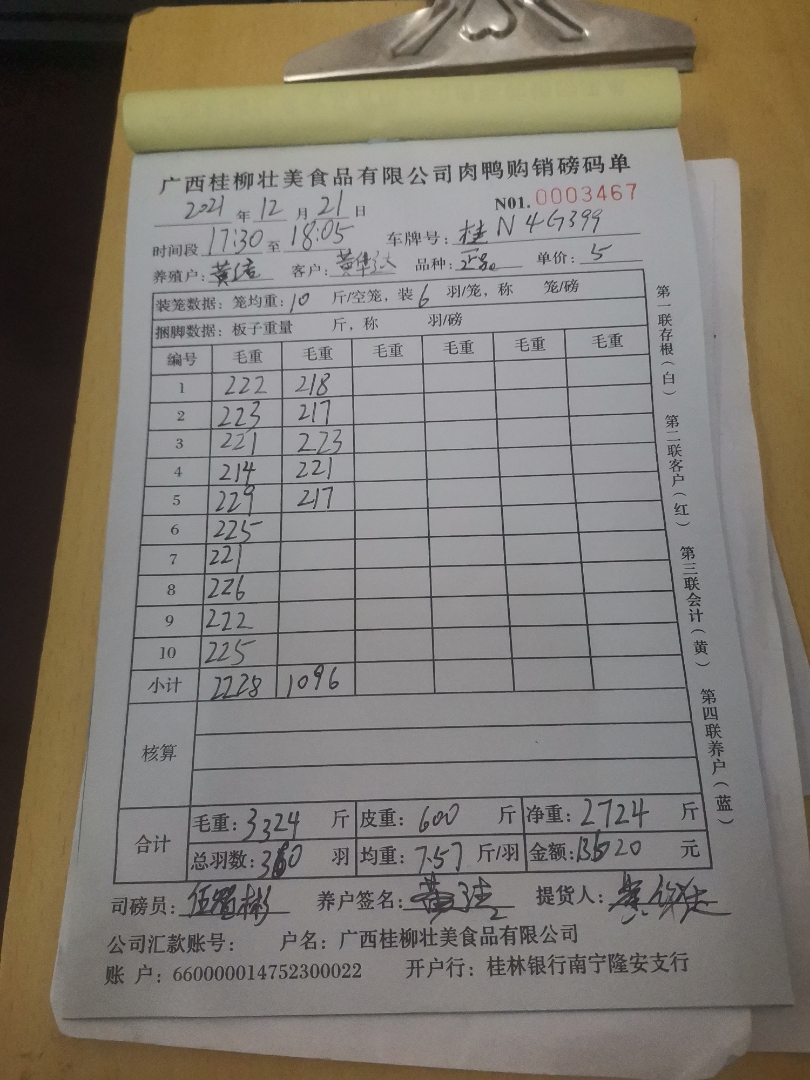 广西桂柳壮美食品有限公司肉鸭购销磅码单
2021 年 12 月 21 日 N01. 0003467
时间段 17:30 至 18:05 车牌号: 桂N4G399
养殖户: 客户: 黄华达 品种: 正品 单价: 5
装笼数据: 笼均重: 10 斤/空笼, 装 6 羽/笼, 称 笼/磅
捆脚数据: 板子重量 斤, 称 羽/磅
编号 毛重 毛重 毛重 毛重 毛重 毛重
1 222 218
2 223 217
3 221 223
4 214 221
5 229 217
6 225
7 221
8 226
9 222
10 225
小计 2228 1096
核算
合计 毛重: 3324 斤 皮重: 600 斤 净重: 2724 斤
总羽数: 360 羽 均重: 7.57 斤/羽 金额: 13620 元
司磅员: 养户签名: 提货人:
公司汇款账号: 户名: 广西桂柳壮美食品有限公司
账 户: 660000014752300022 开户行: 桂林银行南宁隆安支行
第一联存根(白) 第二联客户(红) 第三联会计(黄) 第四联养户(蓝)